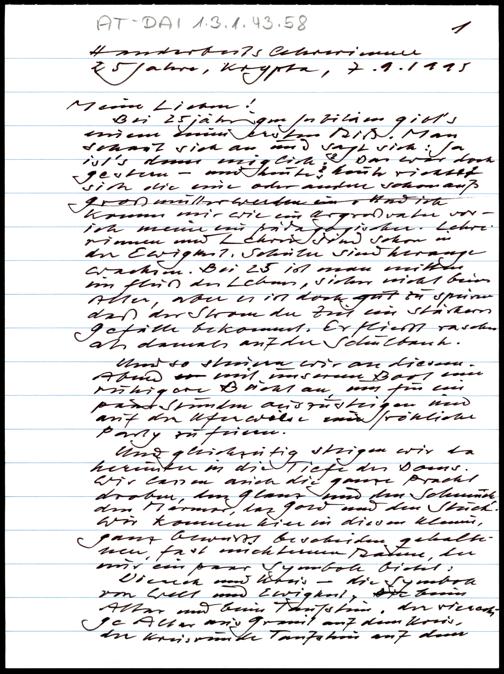 AT-DAI 1.3.1.43.58
1
Handarbeitslehrerinnen
25 Jahre, Krypta, 7.9.1995
Meine Lieben!
Bei 25jährigem Jubiläum gibt's
einem einen ersten Riß. Man
schaut sich an und sagt sich: Ja
ist's denn möglich? Das war doch
gestern - und heute? heute richtet
sich die eine oder andere schon aufs
Großmutterwerden ein. Und ich
komme mir wie ein Urgroßvater vor -
ich meine ein pädagogischer. Lehre-
rinnen und Lehrer sind schon in
der Ewigkeit. Schüler sind herange-
wachsen. Bei 25 ist man mitten
im Fluß des Lebens, sicher nicht beim
Alter, aber es ist doch gut zu spüren
daß der Strom der Zeit ein stärkeres
Gefälle bekommt. Er fließt rascher
als damals auf der Schulbank.
Und so steuern wir an diesem
Abend mit unserem Boot eine
ruhigere Bucht an, um für ein
paar Stunden auszusteigen und
auf der Uferwiese eine fröhliche
Party zu feiern.
Und gleichzeitig steigen wir da
herunter in die Tiefe des Doms.
Wir lassen auch die ganze Pracht
droben, den Glanz und den Schmuck,
den Marmor, das Gold und den Stuck.
Wir kommen hier in diesem kleinen,
ganz bewußt bescheiden gehalte-
nen, fast nüchternen Raum, der
nur ein paar Symbole bietet:
Viereck und Kreis - die Symbole
von Welt und Ewigkeit, beim
Altar und beim Taufstein, der vierecki-
ge Altar aus Granit auf dem Kreis,
der kreisrunde Taufstein auf dem